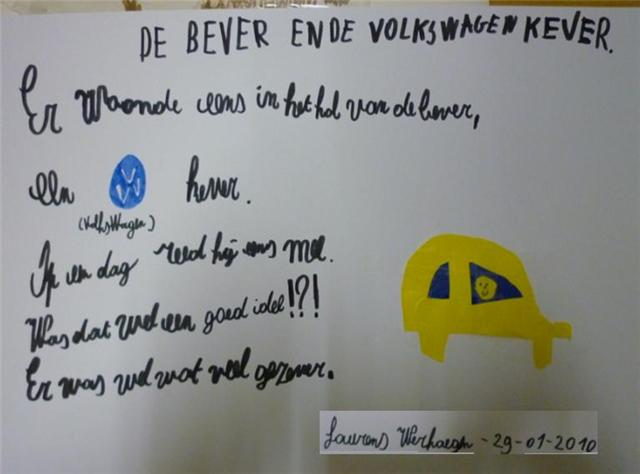 DE BEVER EN DE VOLKSWAGEN KEVER.
Er woonde eens in het hol van de bever,
een VW kever.
(VolksWagen)
Op een dag reed hij eens mee.
Was dat wel een goed idee!?!
Er was wel wat veel gezever.
Laurens Verhaegen - 29-01-2010